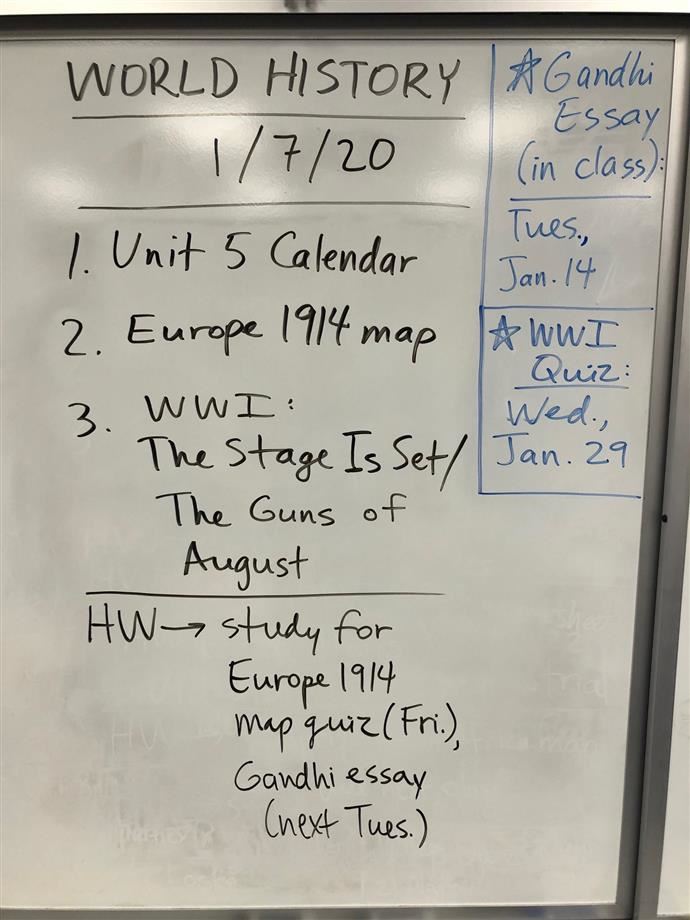 WORLD HISTORY
1/7/20
1. Unit 5 Calendar
2. Europe 1914 map
3. WWI:
The Stage Is Set/
The Guns of
August
HW→ study for
Europe 1914
map quiz (Fri.),
Gandhi essay
(next Tues.)
☆Gandhi
Essay
(in class):
Tues.,
Jan. 14
☆WWI
Quiz:
Wed.,
Jan. 29